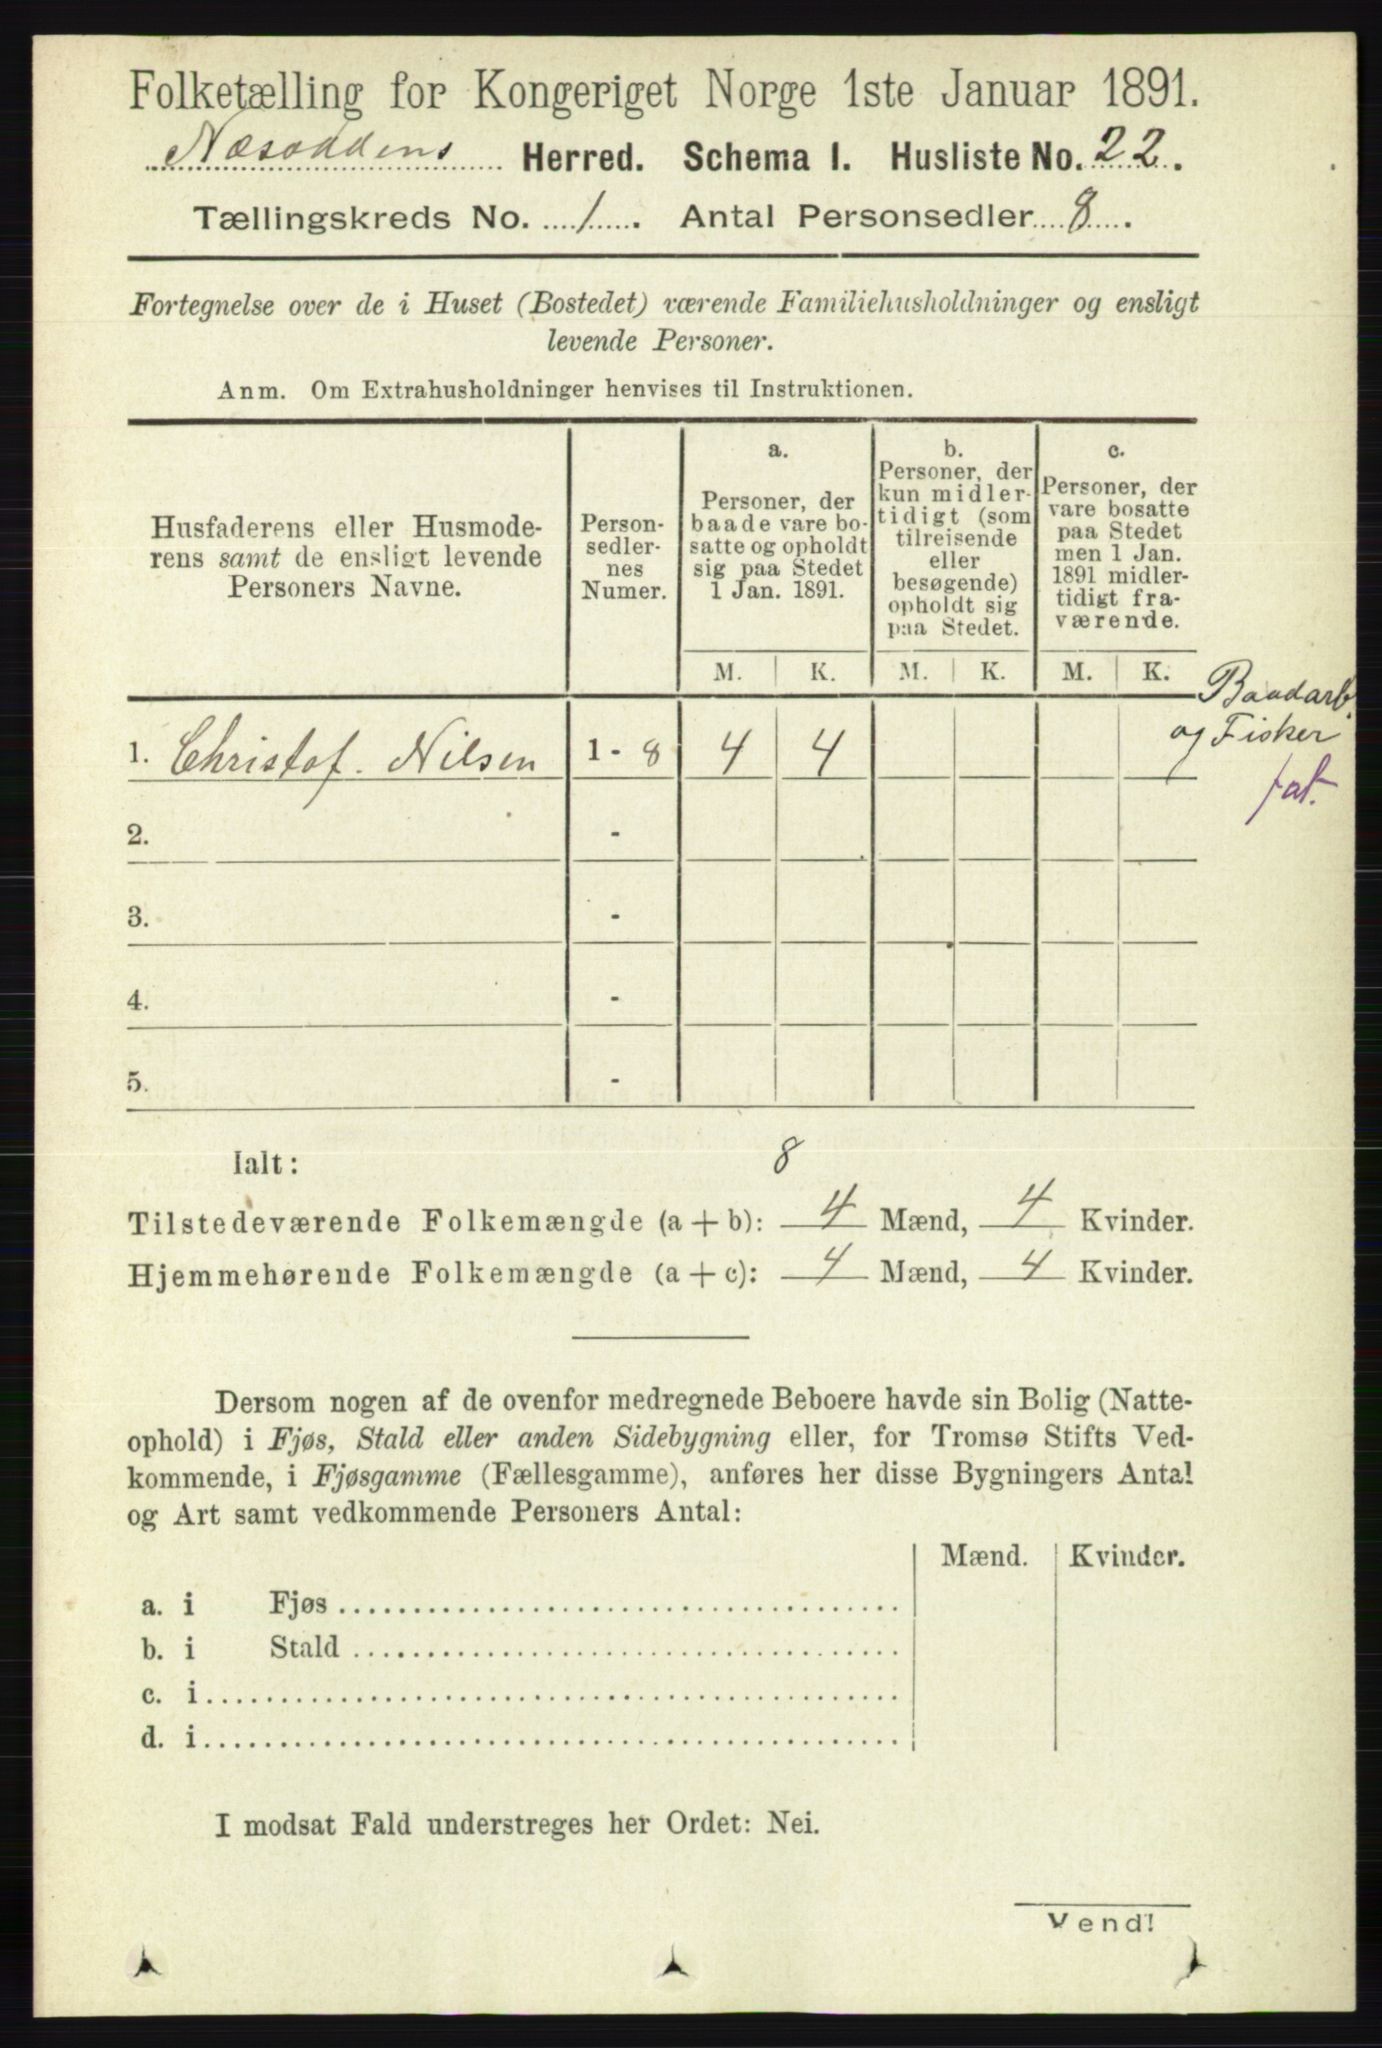 Folketælling for Kongeriget Norge 1ste Januar 1891.
Næsoddens Herred. Schema I. Husliste No. 22.
Tællingskreds No. 1. Antal Personsedler 8.
Fortegnelse over de i Huset (Bostedet) værende Familiehusholdninger og ensligt
levende Personer.
Anm. Om Extrahusholdninger henvises til Instruktionen.
Husfaderens eller Husmode-
rens samt de ensligt levende
Personers Navne.
Person-
sedler-
nes
Numer.
a.
Personer, der
baade vare bo-
satte og opholdt
sig paa Stedet
1 Jan. 1891.
b.
Personer, der
kun midler-
tidigt (som
tilreisende
eller
besøgende)
opholdt sig
paa Stedet.
c.
Personer, der
vare bosatte
paa Stedet
men 1 Jan.
1891 midler-
tidigt fra-
værende.
M. K. M. K. M. K.
Baadarb.
og Fisker
fat.
1. Christof. Nilsen 1 - 8 4 4
2. -
3. -
4. -
5. -
Ialt: 8
Tilstedeværende Folkemængde (a + b): 4 Mænd, 4 Kvinder.
Hjemmehørende Folkemængde (a + c): 4 Mænd, 4 Kvinder.
Dersom nogen af de ovenfor medregnede Beboere havde sin Bolig (Natte-
ophold) i Fjøs, Stald eller anden Sidebygning eller, for Tromsø Stifts Ved-
kommende, i Fjøsgamme (Fællesgamme), anføres her disse Bygningers Antal
og Art samt vedkommende Personers Antal:
Mænd. Kvinder.
a. i Fjøs
b. i Stald
c. i
d. i
I modsat Fald understreges her Ordet: Nei.
Vend!